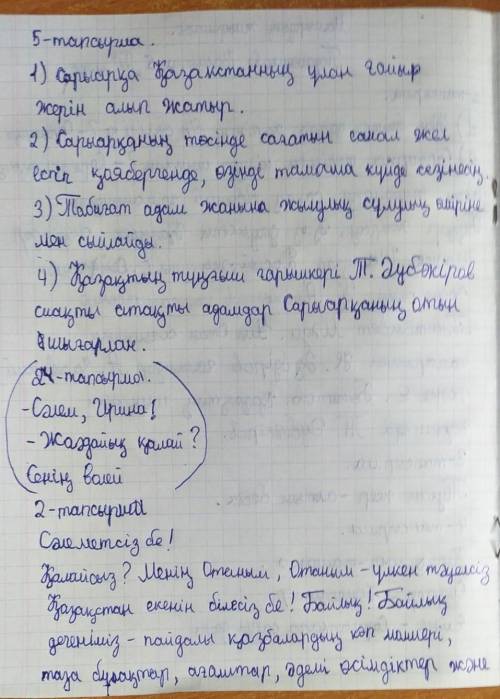 5-тапсырма.
1) Сарыарқа Қазақстанның ұлан ғайыр
жерін алып жатыр.
2) Сарыарқаның төсінде соғатын самал жел
есіп қаябергенде, өзіңді тамаша күйде сезінесің.
3) Табиғат адам жанына жылулық сұлулық өміріне
мен сыйлайды.
4) Қазақтың тұңғыш ғарышкері Т. Әубәкіров
сияқты атақты адамдар Сарыарқаның атын
шығарған.
24-тапсырма.
-Сәлем, Ирина!
- Жағдайың қалай?
Сенің
2-тапсырма
Сәлеметсіз бе!
Қалайсыз? Менің Отаным, Отаным - үлкен тәуелсіз
Қазақстан екенін білесіз бе! Байлық! Байлық
дегеніміз - пайдалы қазбалардың көп мөлшері,
таза бұлақтар, ағаштар, әдемі өсімдіктер және